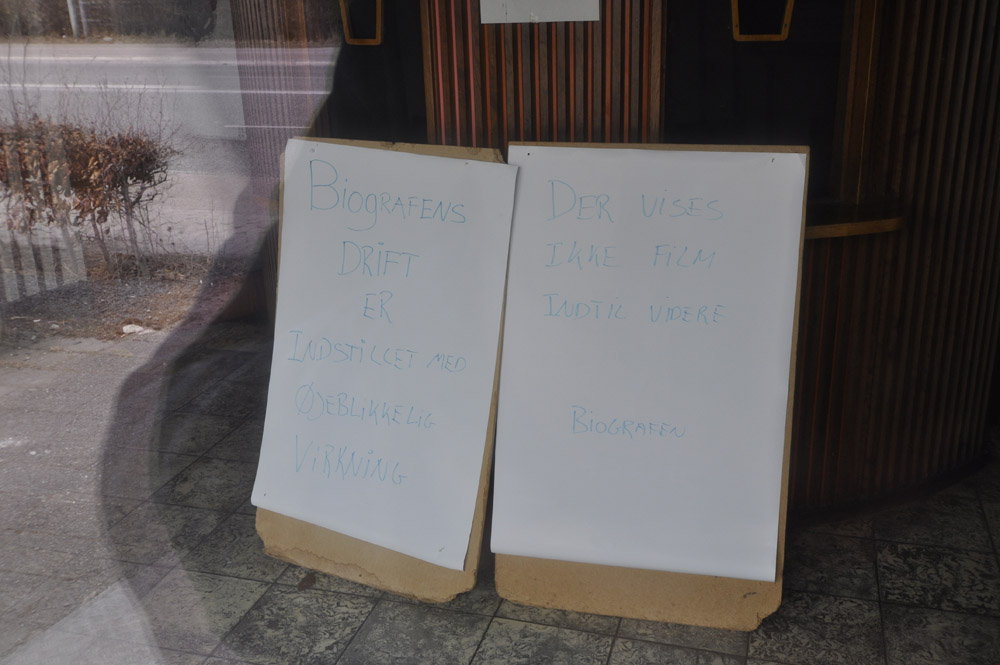 BIOGRAFENS
DRIFT
ER
INDSTILLET MED
ØJEBLIKKELIG
VIRKNING
DER VISES
IKKE FILM
INDTIL VIDERE
BIOGRAFEN